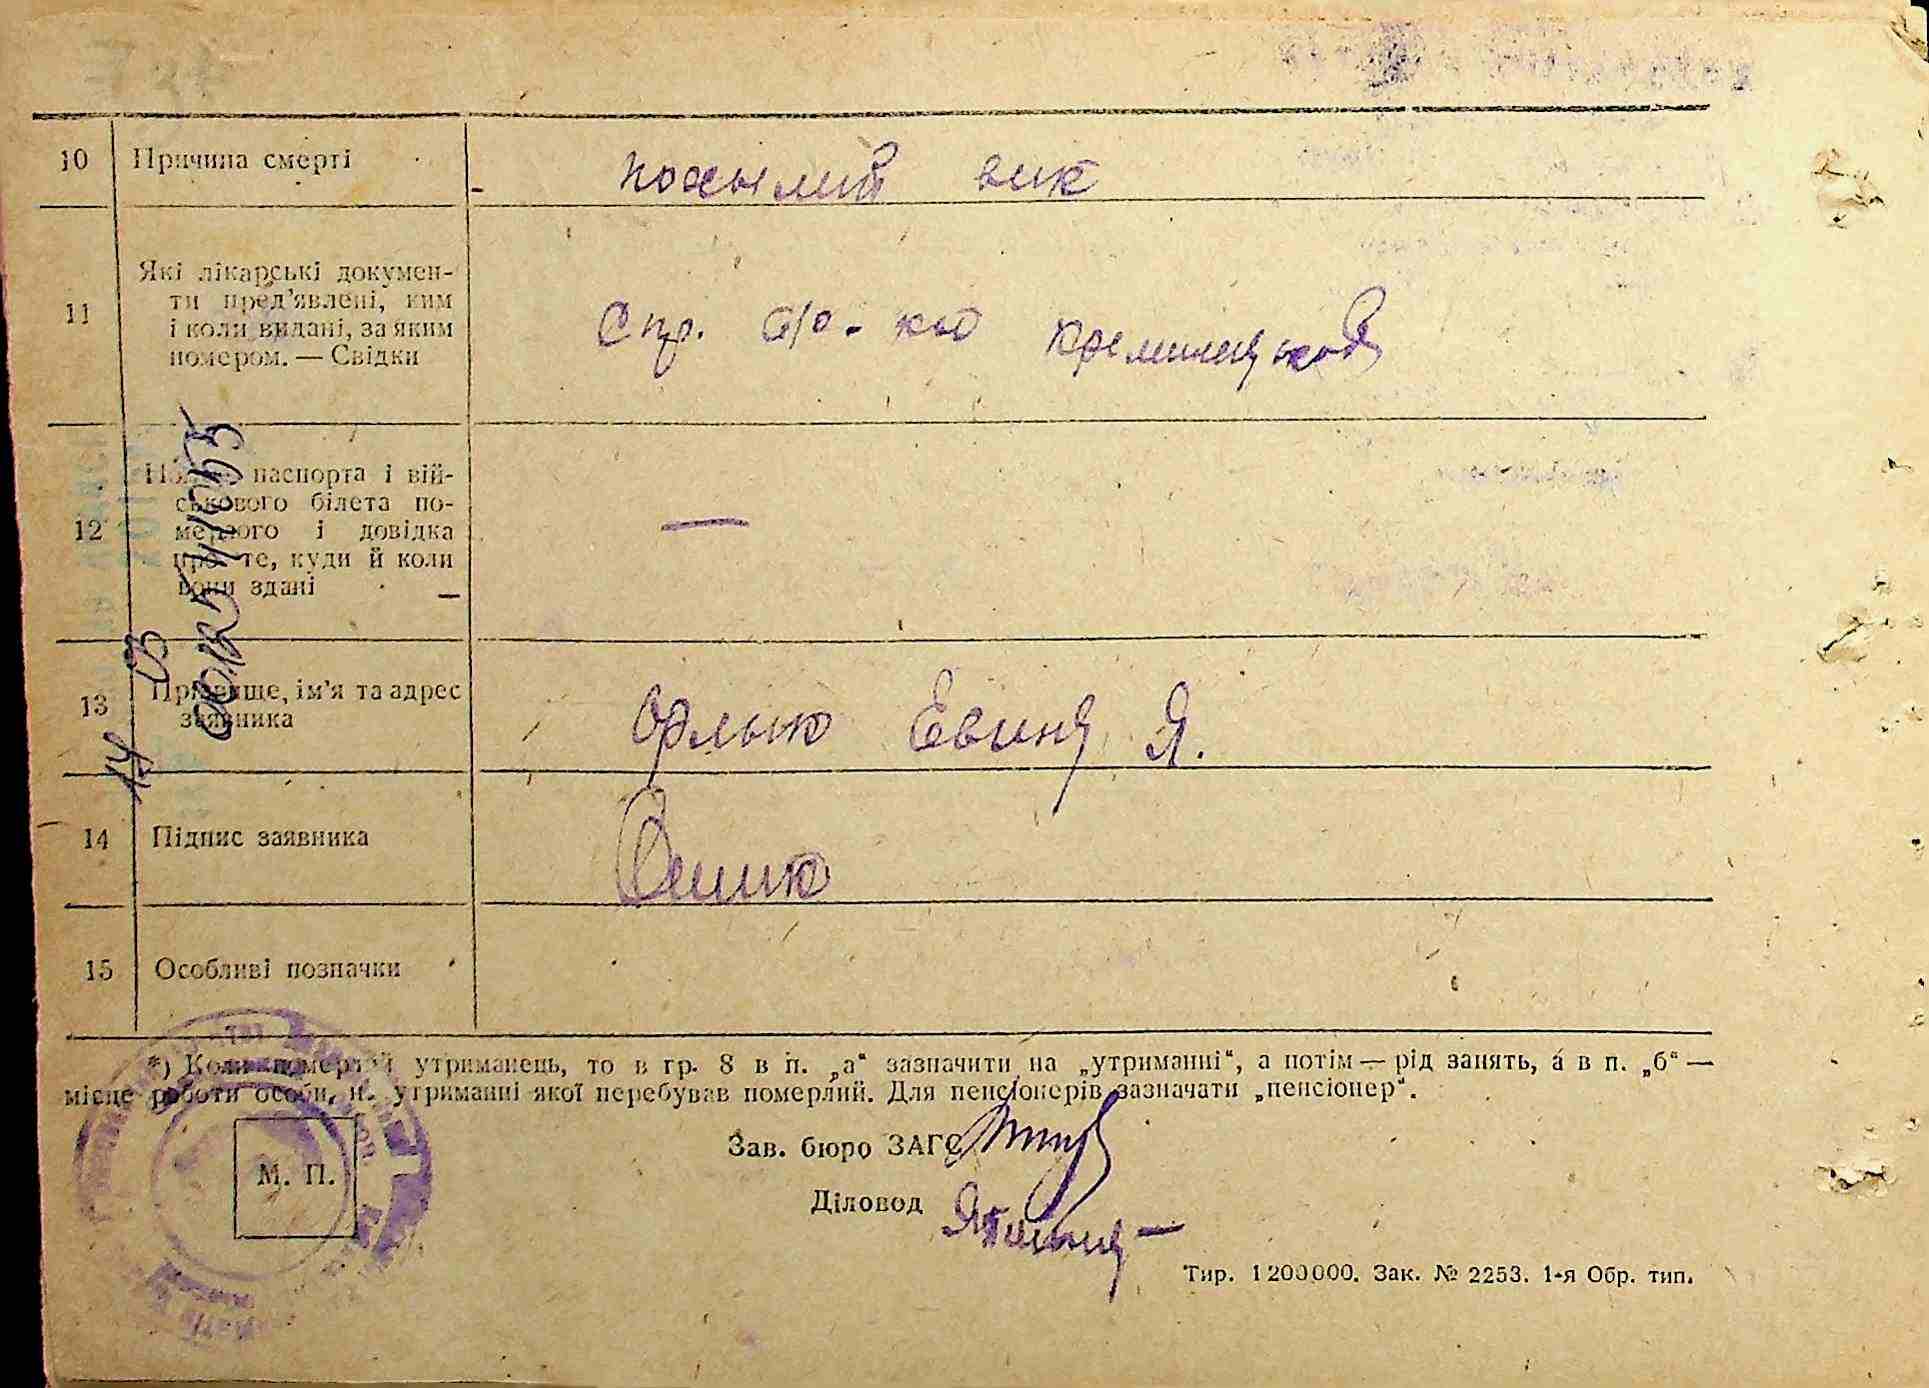 10 Причина смерті
похылий вик
11 Які лікарські докумен-
ти пред'явлені, ким
і коли видані, за яким
номером. — Свідки
Спр.
12 паспорта і вій-
ськового білета по-
мерлого і довідка
про те, куди й коли
вони здані
—
13 Прізвище, ім'я та адрес
заявника
Орлык Евины Я.
14 Підпис заявника
15 Особливі позначки
*) Коли померлий утриманець, то в гр. 8 в п. „а“ зазначити на „утриманні“, а потім — рід занять, а в п. „б“ —
місце роботи особи, на утриманні якої перебував померлий. Для пенсіонерів зазначати „пенсіонер“.
М. П.
Зав. бюро ЗАГС
Діловод
Тир. 1200000. Зак. № 2253. 1-я Обр. тип.